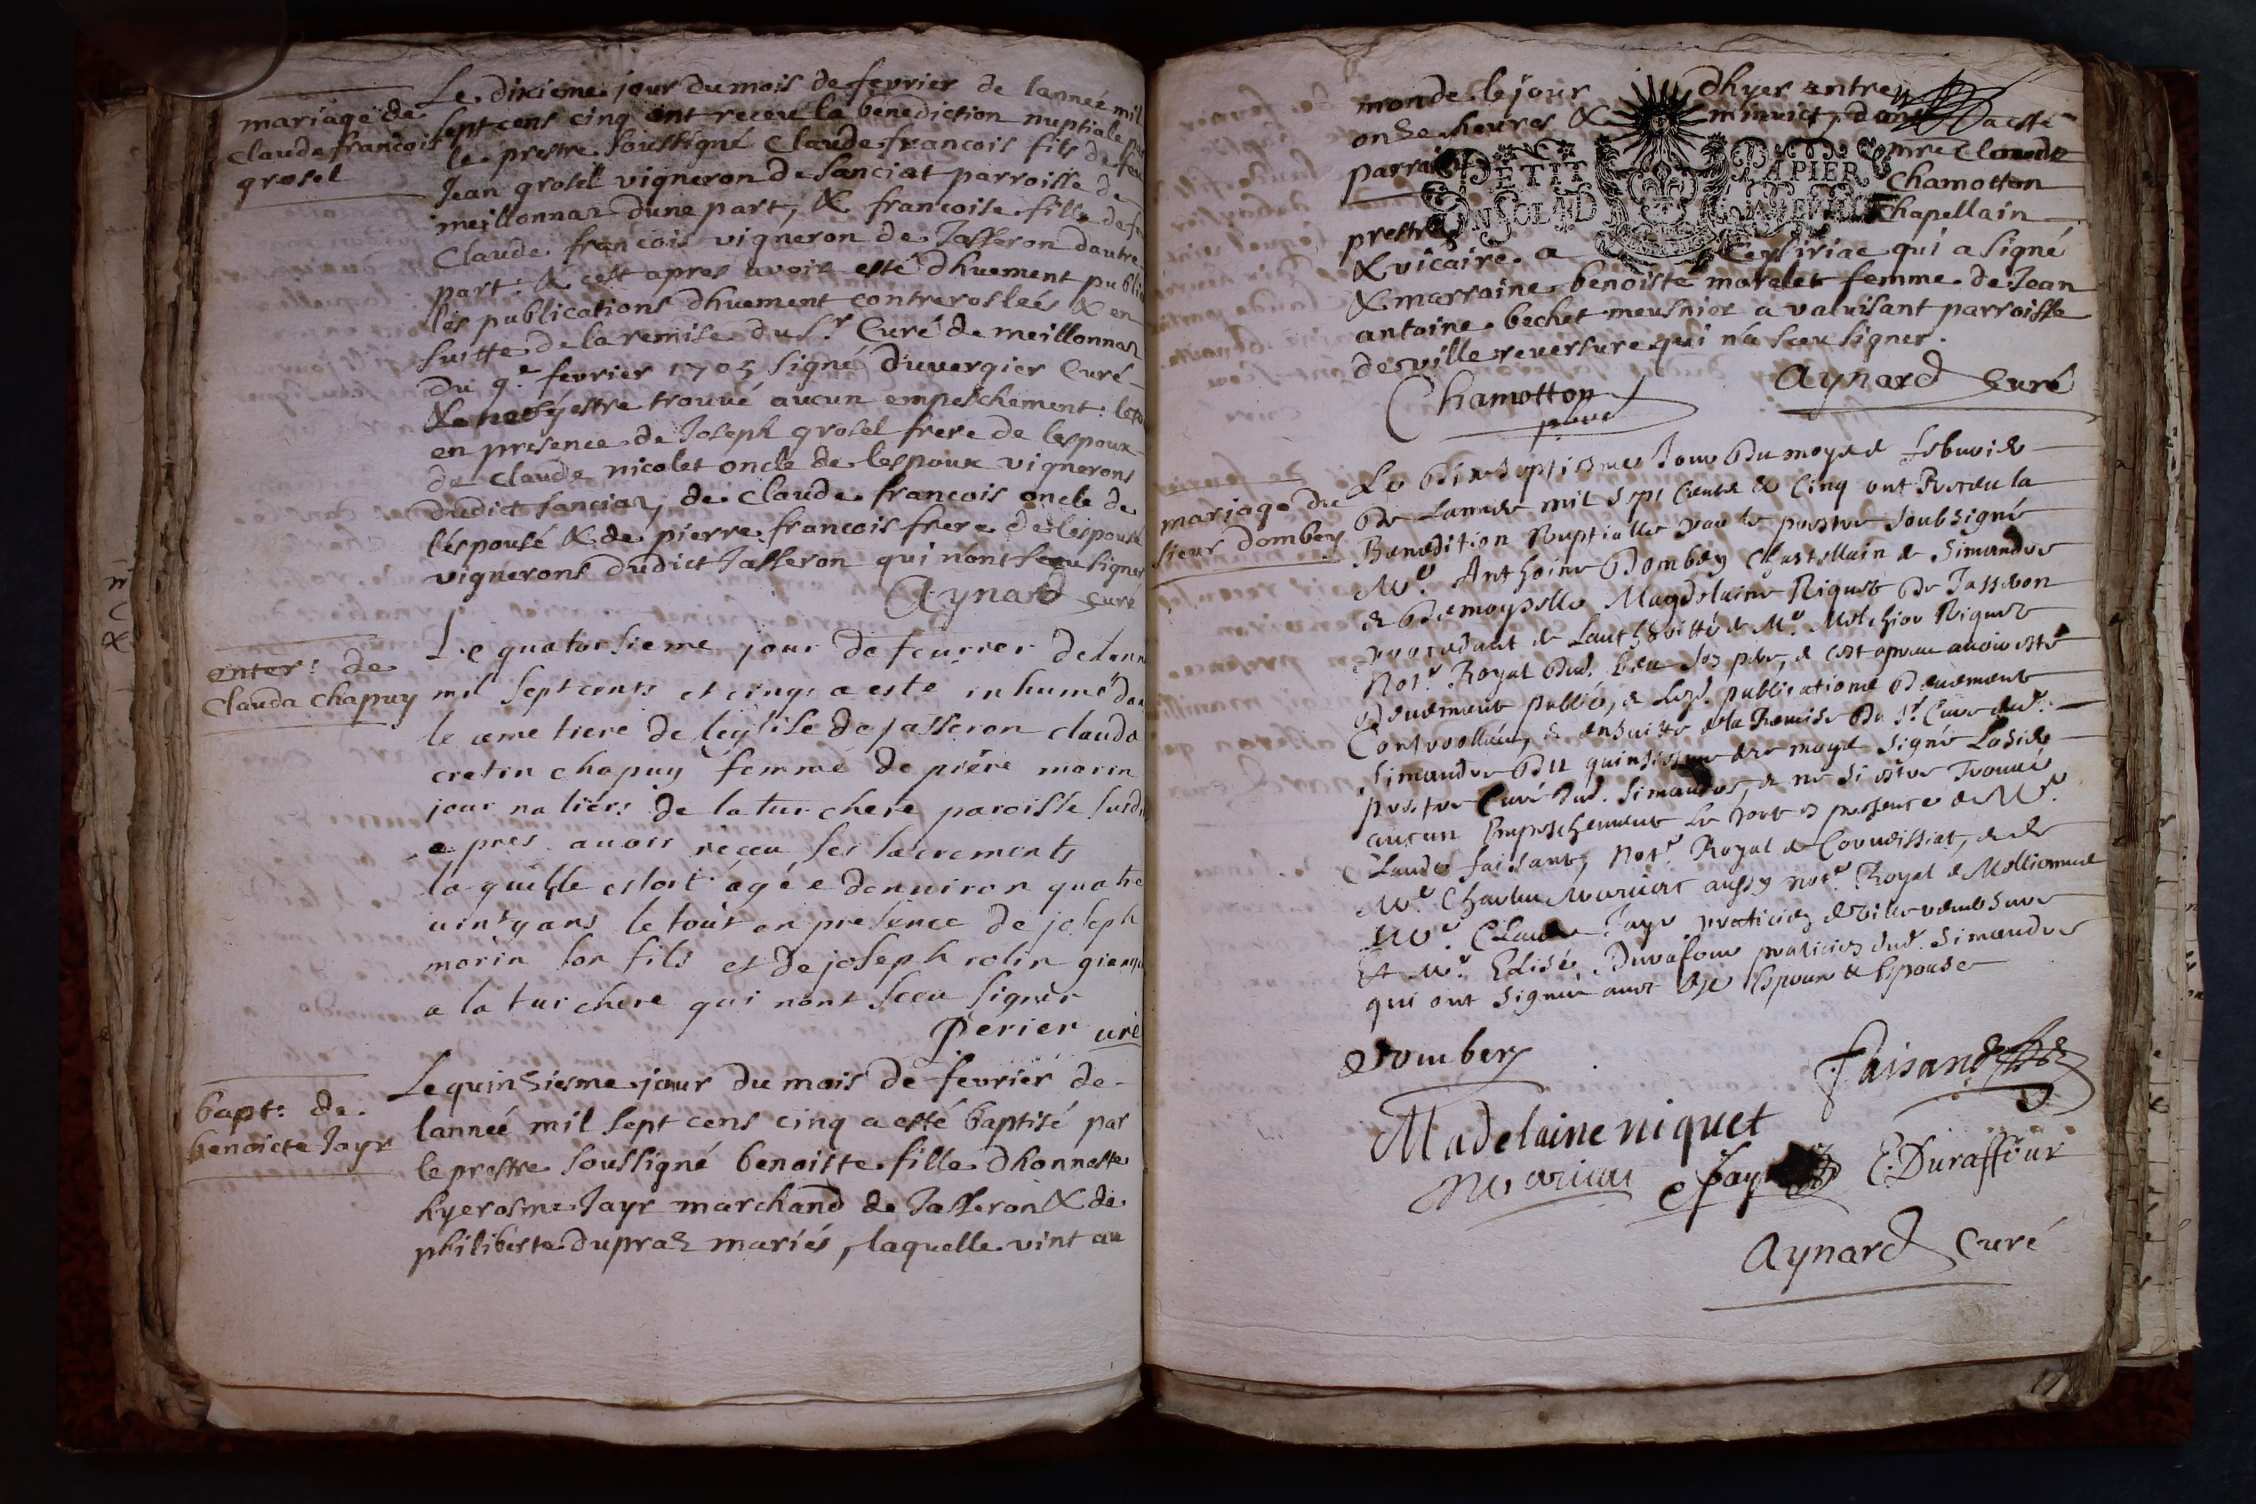 mariage de
Claude francois
grosel
Le dixieme jour du mois de fevrier de lannee mil
sept cens cinq ont receu la benediction nuptiale par
le prestre soussigné Claude francois fils de feu
Jean grosel vigneron de sanciat parroisse de
meillonnaz dune part, & francoise fille de feu
Claude francois vigneron de Jasseron dautre
part: & cest apres avoir esté dhuement publié
les publications dhuement contreroslées & en
suitte de la remise du Sr. Curé de meillonnaz
du 9.e fevrier 1705 signé duvergier Curé
estre trouvé aucun empeschement: le tout
en presence de Joseph grosel frere de lespoux
de Claude nicolet oncle de lespoux vignerons
dudict sanciaz, de Claude francois oncle de
lespouse & de pierre francois frere de lespouse
vignerons dudict Jasseron qui n'ont sceu signer
Aynard curé
enter: de
Clauda chapuy
Le quatorsieme jour de feurier de lann
mil sept cents et cinq a esté inhumé dan
le cemetiere de leglise de jasseron clauda
cretin chapuy femme de piere morin
jour nalier de la tur chere paroisse susd
apres auoir receu ses sacrements
la quelle estoit agée denuiron quatre
uints ans le tout en presence de joseph
morin son fils et de joseph rolin
a la tur chere qui nont sceu signer
Perier uré
bapt: de
benoicte Jayr
Le quinsiesme jour du mois de fevrier de
lannée mil sept cens cinq a esté baptisé par
le prestre soussigné benoiste fille dhonneste
hyerosme Jayr marchand de Jasseron & de
philiberte dupraz mariés, laquelle vint au
monde le jour dhyer entre
onze heures & minuict, dont a esté
parrain mre Claude
Chamotton
prestre Chapellain
& vicaire a Ceysiriac qui a signé
& marraine benoiste morelet femme de Jean
antoine bechet meusnier a valuisant parroisse
de ville reversure qui n'a sceu signer.
PETIT PAPIER
Chamotton
Aynard Curé
mariage du
sieur dombey
Le dixseptiesme Jour du moys de febvrier
de lannee mil sept centz & cinq ont Receu la
Benedition Nuptialle par le prestre soubsigné
Mr. Anthoine Dombey Chastellain de Simandre
& demoyselle Magdelaine Niquet de Jasseron
procedant de lauthoritté de Mr. Melchior Niquet
Not.e Royal dud. lieu son pere, & cest apres avoir esté
deuement publié, & lesd. publications deuement
Controollées, & ensuitte de la Remise du Sr. Curé dud.
Simandre du quinsiesme de ce moys signé
prestre Curé dud. Simandre, & ne si estre Trouvé
aucun Empeschement le tout en presence de Mr.
Claude faisant, Not.e Royal de Coursissiat, & de
Mr. Charles Moriciat aussy not.e Royal de Mellionnas
Mr. Claude Jayr praticien de Villereversure
et Mr. Elisé Duraffour praticien dud. Simandre
qui ont signé avec les Espoux & Espouse
Dombey
Faisand
Madelaine niquet
C Jayr
E. Duraffour
Aynard Curé